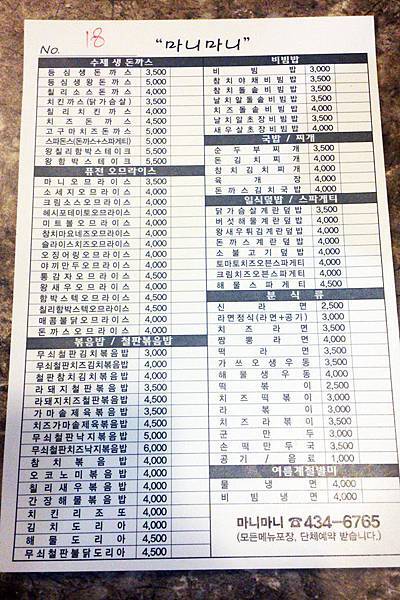 No. 18
"마니마니"
수제 생 돈까스
등심생돈까스 3,500
등심생왕돈까스 5,000
칠리소스돈까스 4,000
치킨까스(닭가슴살) 3,500
칠리치킨까스 4,000
치즈돈까스 4,500
고구마치즈돈까스 5,000
스파돈스(돈까스+스파게티) 5,000
왕칠리함박스테이크 5,500
왕함박스테이크 5,000
퓨전 오므라이스
마니오므라이스 3,500
소세지오므라이스 4,000
크림소스오므라이스 4,000
헤시포테이토오므라이스 4,000
미트볼오므라이스 4,000
참치마요네즈오므라이스 4,000
슬라이스치즈오므라이스 4,000
오징어링오므라이스 4,000
야끼만두오므라이스 4,000
통감자오므라이스 4,500
왕새우오므라이스 4,000
함박스텍오므라이스 4,500
칠리함박스텍오므라이스 4,500
매콤불닭오므라이스 4,000
돈까스오므라이스 4,000
볶음밥 / 철판볶음밥
무쇠철판김치볶음밥 3,000
무쇠철판치즈김치볶음밥 4,000
철판참치김치볶음밥 4,000
라돼지철판볶음밥 3,500
라돼지치즈철판볶음밥 4,500
가마솥제육볶음밥 3,500
치즈가마솥제육볶음밥 4,500
무쇠철판낙지볶음밥 5,000
무쇠철판치즈낙지볶음밥 6,000
참치볶음밥 4,000
오코노미볶음밥 4,000
칠리새우볶음밥 4,000
간장해물볶음밥 4,000
치킨리조또 4,000
김치도리아 4,000
해물도리아 4,500
무쇠철판불닭도리아 4,500
비빔밥
비빔밥 3,000
참치야채비빔밥 3,500
참치돌솥비빔밥 3,500
날치알돌솥비빔밥 3,500
날치알초장비빔밥 4,000
새우살초장비빔밥 4,000
국밥 / 찌개
순두부찌개 3,500
돈김치찌개 4,000
참치김치찌개 4,000
육개장 4,000
돈까스김치국밥 4,000
일식덮밥 / 스파게티
닭가슴살계란덮밥 3,500
버섯해물계란덮밥 4,000
왕새우튀김계란덮밥 4,000
돈까스계란덮밥 4,000
소불고기덮밥 4,000
토마토치즈오븐스파게티 4,000
크림치즈오븐스파게티 4,000
해물스파게티 4,500
분식류
신라면 2,500
라면정식(라면+공기) 3,000
치즈라면 3,500
짬뽕라면 4,000
떡라면 3,500
가쓰오생우동 3,500
해물생우동 4,000
떡볶이 2,500
치즈떡볶이 3,000
라볶이 3,000
치즈라볶이 3,500
군만두 3,000
손떡만두국 3,500
공기/음료 1,000
여름계절별미
물냉면 4,000
비빔냉면 4,000
마니마니 ☎434-6765
(모든메뉴포장, 단체예약 받습니다.)